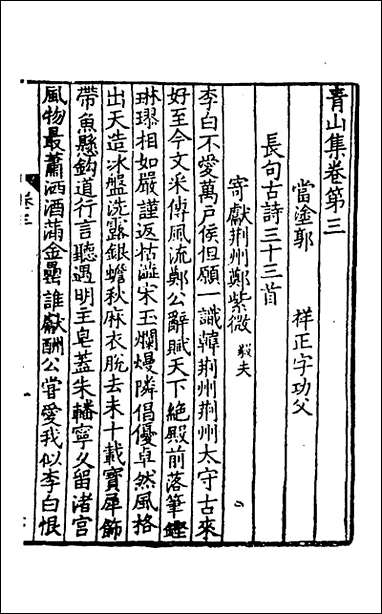 青山集卷第三
當塗郭　祥正字功父
長句古詩三十三首
寄獻荆州鄭紫微毅夫
李白不愛萬戶侯但願一識韓荆州荆州太守古來
好至今文采傳風流鄭公辭賦天下絶殿前落筆鏗
琳璆相如嚴謹返枯澁宋玉爛熳隣倡優卓然風格
出天造冰盤洗露銀蟾秋麻衣脫去未十載寶犀飾
帶魚懸鈎道行言聽遇明主皂蓋朱轓寧久留渚宮
風物最蕭洒酒滿金罍誰獻酬公嘗愛我似李白恨
卷三